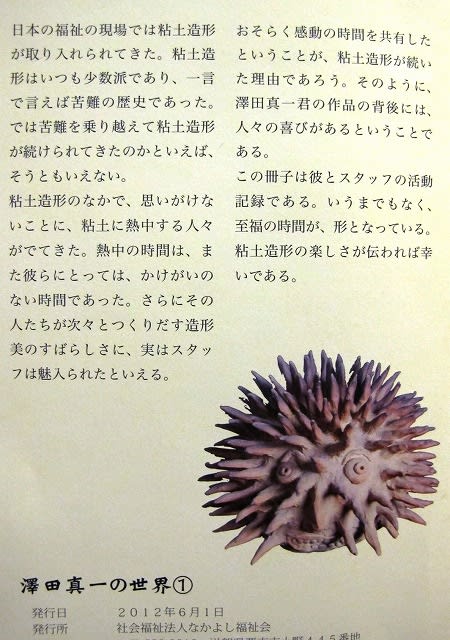 日本の福祉の現場では粘土造形
が取り入れられてきた。粘土造
形はいつも少数派であり、一言
で言えば苦難の歴史であった。
では苦難を乗り越えて粘土造形
が続けられてきたのかといえば、
そうともいえない。
粘土造形のなかで、思いがけな
いことに、粘土に熱中する人々
がでてきた。熱中の時間は、ま
た彼らにとっては、かけがいの
ない時間であった。さらにその
人たちが次々とつくりだす造形
美のすばらしさに、実はスタッ
フは魅入られたといえる。
おそらく感動の時間を共有した
ということが、粘土造形が続い
た理由であろう。そのように、
澤田真一君の作品の背後には、
人々の喜びがあるということで
ある。
この冊子は彼とスタッフの活動
記録である。いうまでもなく、
至福の時間が、形となっている。
粘土造形の楽しさが伝われば幸
いである。
澤田真一の世界①
発行日 2012年6月1日
発行所 社会福祉法人なかよし福祉会
445番地